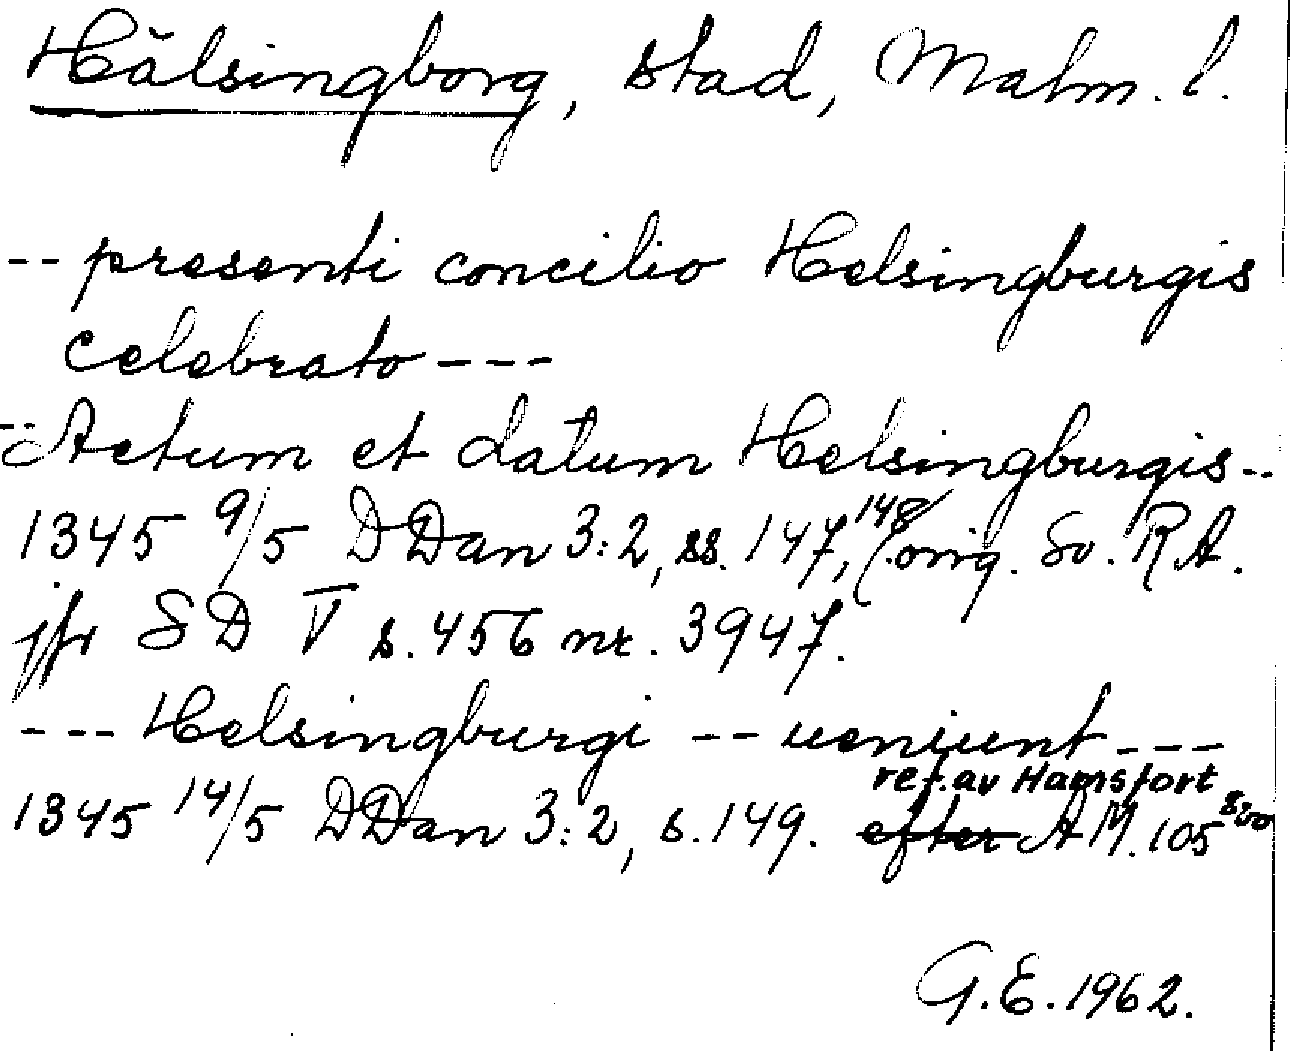 Hälsingborg, stad, Malm. l.
-- presenti concilio Helsingburgis
celebrato ---
-- Actum et datum Helsingburgis --
1345 9/5 DDan 3:2, ss. 147, 148 (orig. Sv. R.A.
jfr SD V s. 456 nr. 3947.
--- Helsingburgi -- ueniunt ---
ref. av Hamsfort
1345 14/5 DDan 3:2, s. 149. efter AM. 105 8:vo
G.E. 1962.